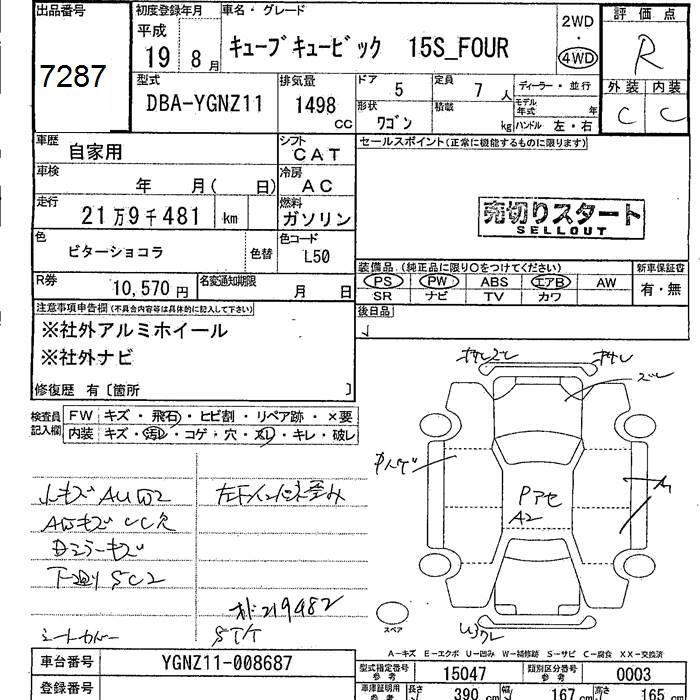 出品番号
7287
初度登録年月
平成
19 8月
車名・グレード
キューブキュービック 15S_FOUR
2WD
・
4WD
評価点
R
外装 内装
C C
型式
DBA-YGNZ11
排気量
1498
cc
ドア 5
定員 7人
形状 ワゴン
積載 kg
ディーラー・並行
モデル年式 年
ハンドル 左・右
車歴
自家用
シフト
CAT
車検
年 月( 日)
冷房
AC
走行
21万9千481 km
燃料
ガソリン
色
ビターショコラ
色替
色コード
L50
R券
10,570円
名変通知期限
月 日
セールスポイント(正常に機能するものに限ります)
売切りスタート
SELLOUT
装備品(純正品に限り○をつけてください)
新車保証書
PS PW ABS エアB AW
有・無
SR ナビ TV カワ
後日品
注意事項申告欄(不具合内容等は具体的に記入して下さい)
※社外アルミホイール
※社外ナビ
修復歴 有〔箇所 〕
検査員
記入欄
FW キズ・飛石・ヒビ割・リペア跡・×要
内装 キズ・汚レ・コゲ・穴・スレ・キレ・破レ
小キズAUW2
AWキズ
Dミラーキズ
下廻りSC2
219482
シートカバー
Pアセ
A2
スペア
A-キズ E-エクボ U-凹み W-補修跡 S-サビ C-腐食 XX-交換済
車台番号
YGNZ11-008687
登録番号
型式指定番号
参考
15047
類別区分番号
参考
0003
車庫証明用
参考
長さ 390 cm
幅 167 cm
高さ 165 cm